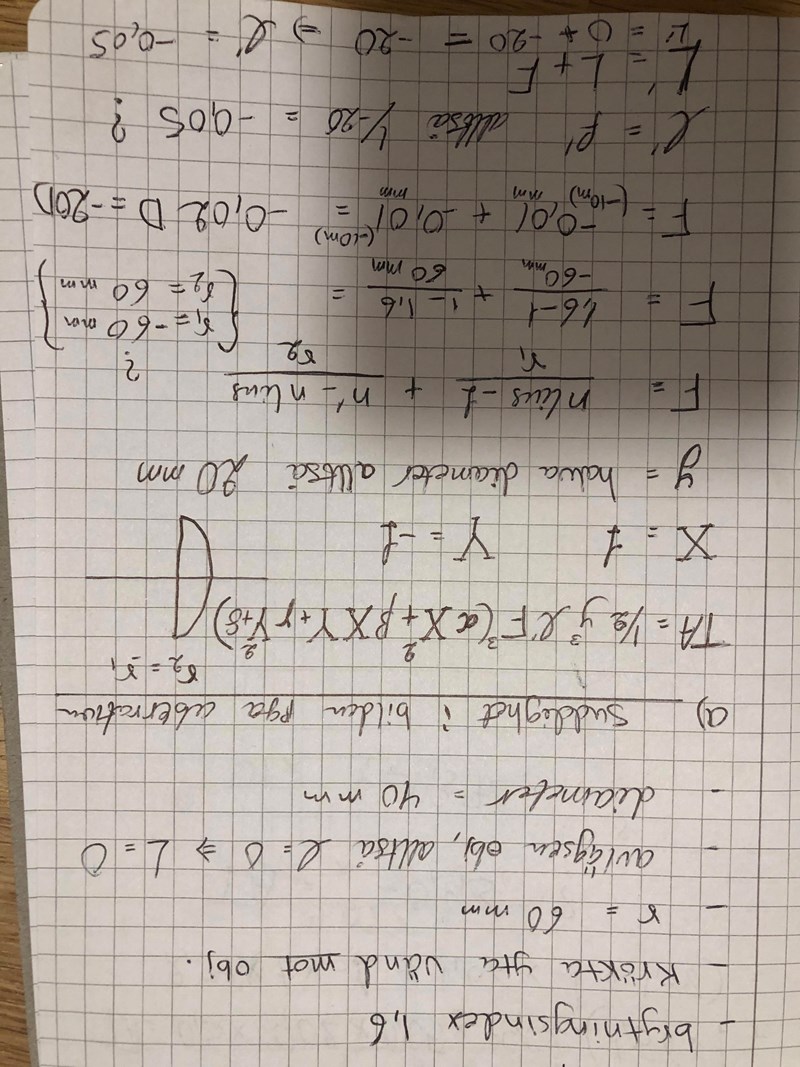 - brytningsindex 1,6
- Krökta yta vänd mot obj.
- r = 60 mm
- avlägsen obj, alltså l = 0 ⇒ L = 0
- diameter = 40 mm
a) Suddighet i bilden pga aberration
r₂ = r₁
TA = 1/2 y³ l' F³ (αX² + βXY + γY² + δ)
X = 1 Y = -1
y = halva diameter alltså 20 mm
F = n lins - 1 / r₁ + n' - n lins / r₂ ?
{ r₁ = -60 mm
r₂ = 60 mm }
F = 1,6 - 1 / -60 mm + 1 - 1,6 / 60 mm =
F = -0,01 mm (-10 m) + -0,01 mm (-10 m) = -0,02 D = -20D
l' = f' alltså 1/-20 = -0,05 ?
L' = L + F
L' = 0 + -20 = -20 ⇒ l' = -0,05